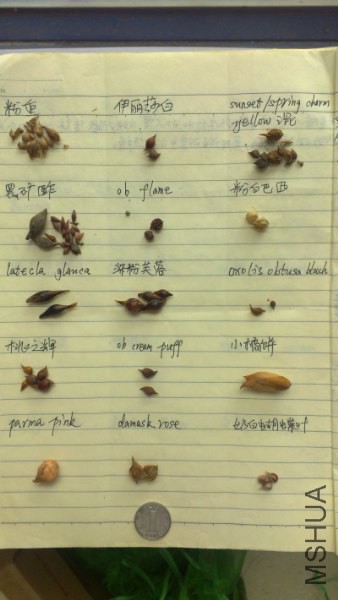 粉兔
伊丽莎白
sunset/spring charm
yellow 混
ob flame
粉白巴西
latecla glauca
深粉芙蓉
oxalis obtusa blush
桃之辉
ob cream puff
小橘饼
parma pink
damask rose
MSHUA